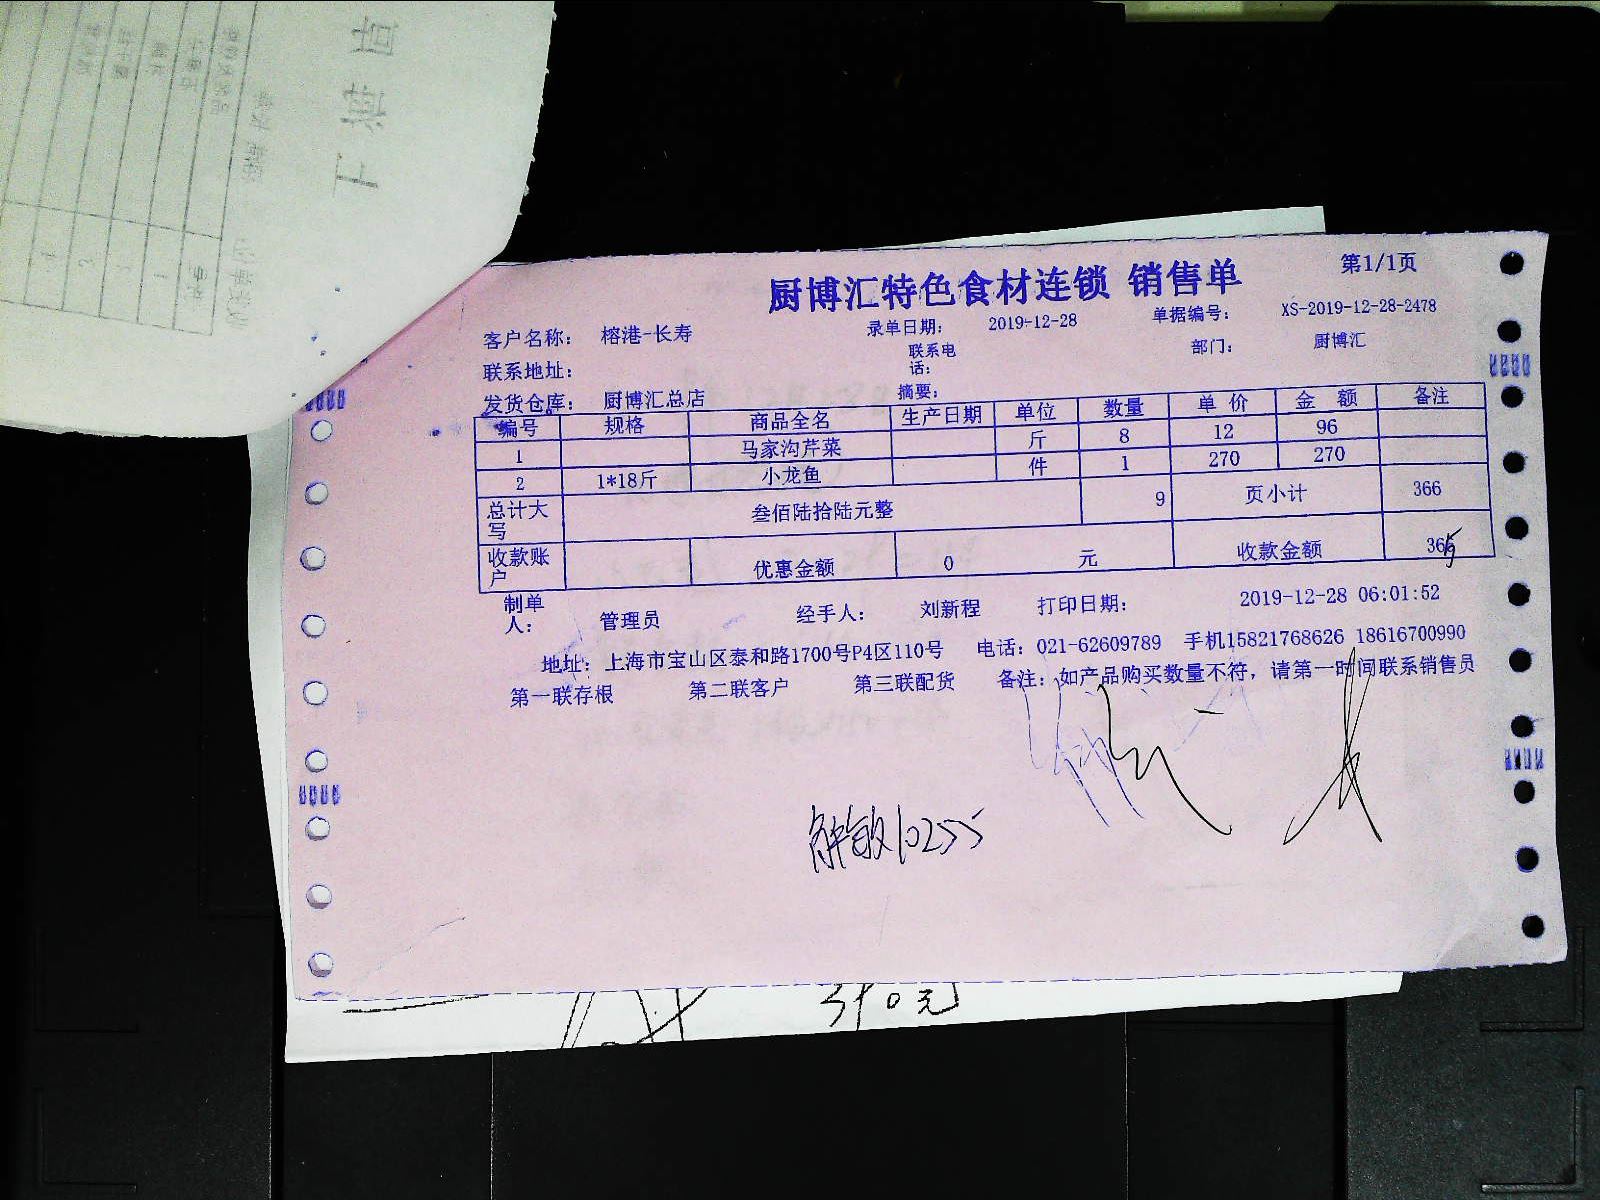 厨博汇特色食材连锁 销售单
第1/1页
客户名称: 榕港-长寿 录单日期: 2019-12-28 单据编号: XS-2019-12-28-2478
联系地址: 联系电话: 部门: 厨博汇
发货仓库: 厨博汇总店 摘要:
编号 规格 商品全名 生产日期 单位 数量 单 价 金 额 备注
1 马家沟芹菜 斤 8 12 96
2 1*18斤 小龙鱼 件 1 270 270
总计大写 叁佰陆拾陆元整 9 页小计 366
收款账户 优惠金额 0 元 收款金额 366
制单人: 管理员 经手人: 刘新程 打印日期: 2019-12-28 06:01:52
地址: 上海市宝山区泰和路1700号P4区110号 电话: 021-62609789 手机15821768626 18616700990
第一联存根 第二联客户 第三联配货 备注: 如产品购买数量不符, 请第一时间联系销售员
10255